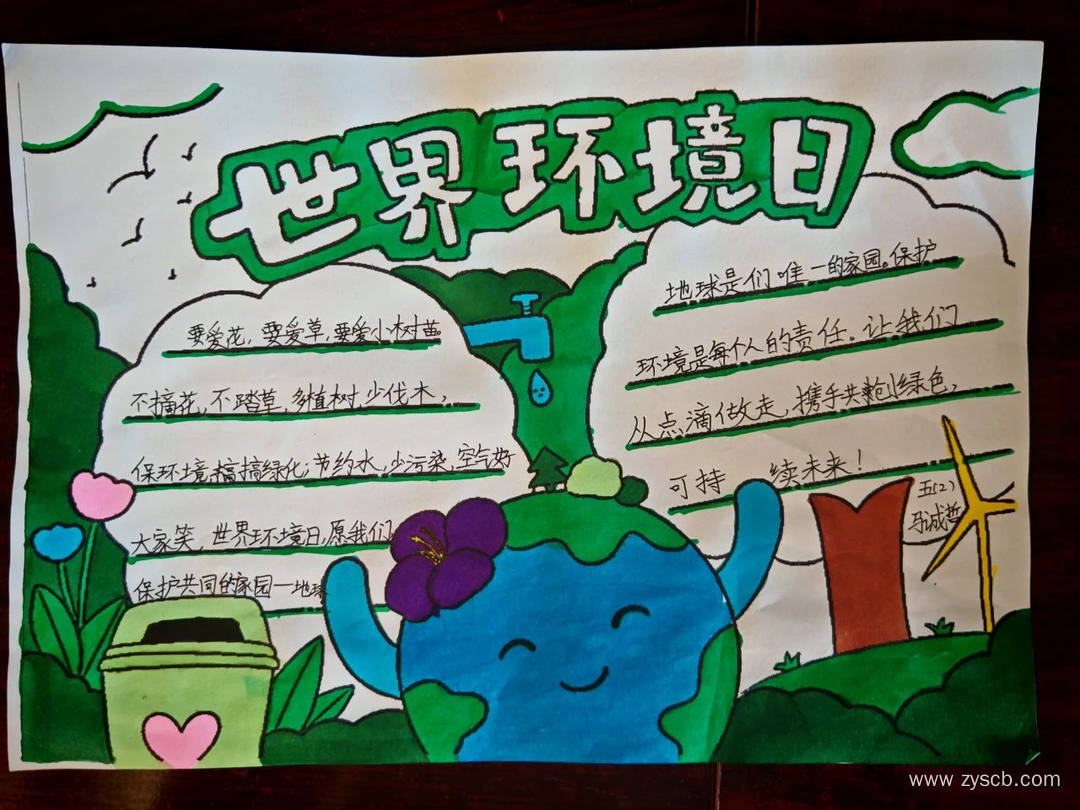 世界环境日
要爱花,要爱草,要爱小树苗。
不摘花,不踏草,多植树,少伐木,
保环境,搞搞绿化;节约水,少污染,空气好
大家笑,世界环境日,愿我们
保护共同的家园一地球
地球是们唯一的家园。保护
环境是每个人的责任。让我们
从点滴做走,携手共创绿色,
可持续未来!
五(2)
马诚哲
www.zyscb.com